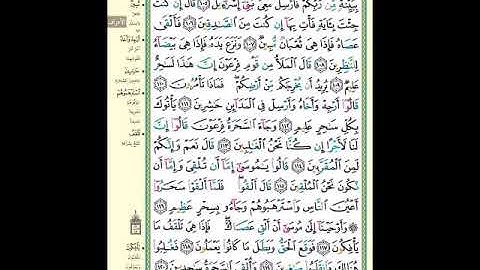 بِبَيِّنَةٍ مِّن رَّبِّكُمْ فَأَرْسِلْ مَعِيَ بَنِىٓ إِسْرَٰٓءِيلَ ۝١٠٥ قَالَ إِن كُنتَ
جِئْتَ بِـَٔايَةٍ فَأْتِ بِهَآ إِن كُنتَ مِنَ ٱلصَّٰدِقِينَ ۝١٠٦ فَأَلْقَىٰ
عَصَاهُ فَإِذَا هِيَ ثُعْبَانٌ مُّبِينٌ ۝١٠٧ وَنَزَعَ يَدَهُۥ فَإِذَا هِيَ بَيْضَآءُ
لِلنَّٰظِرِينَ ۝١٠٨ قَالَ ٱلْمَلَأُ مِن قَوْمِ فِرْعَوْنَ إِنَّ هَٰذَا لَسَٰحِرٌ
عَلِيمٌ ۝١٠٩ يُرِيدُ أَن يُخْرِجَكُم مِّنْ أَرْضِكُمْ ۖ فَمَاذَا تَأْمُرُونَ ۝١١٠
قَالُوٓا۟ أَرْجِهْ وَأَخَاهُ وَأَرْسِلْ فِى ٱلْمَدَآئِنِ حَٰشِرِينَ ۝١١١ يَأْتُوكَ
بِكُلِّ سَٰحِرٍ عَلِيمٍ ۝١١٢ وَجَآءَ ٱلسَّحَرَةُ فِرْعَوْنَ قَالُوٓا۟ إِنَّ
لَنَا لَأَجْرًا إِن كُنَّا نَحْنُ ٱلْغَٰلِبِينَ ۝١١٣ قَالَ نَعَمْ وَإِنَّكُمْ
لَمِنَ ٱلْمُقَرَّبِينَ ۝١١٤ قَالُوا۟ يَٰمُوسَىٰٓ إِمَّآ أَن تُلْقِىَ وَإِمَّآ أَن
نَّكُونَ نَحْنُ ٱلْمُلْقِينَ ۝١١٥ قَالَ أَلْقُوا۟ ۖ فَلَمَّآ أَلْقَوْا۟ سَحَرُوٓا۟
أَعْيُنَ ٱلنَّاسِ وَٱسْتَرْهَبُوهُمْ وَجَآءُو بِسِحْرٍ عَظِيمٍ ۝١١٦
۞ وَأَوْحَيْنَآ إِلَىٰ مُوسَىٰٓ أَنْ أَلْقِ عَصَاكَ ۖ فَإِذَا هِىَ تَلْقَفُ مَا
يَأْفِكُونَ ۝١١٧ فَوَقَعَ ٱلْحَقُّ وَبَطَلَ مَا كَانُوا۟ يَعْمَلُونَ ۝١١٨ فَغُلِبُوا۟
هُنَالِكَ وَٱنقَلَبُوا۟ صَٰغِرِينَ ۝١١٩ وَأُلْقِىَ ٱلسَّحَرَةُ سَٰجِدِينَ ۝١٢٠